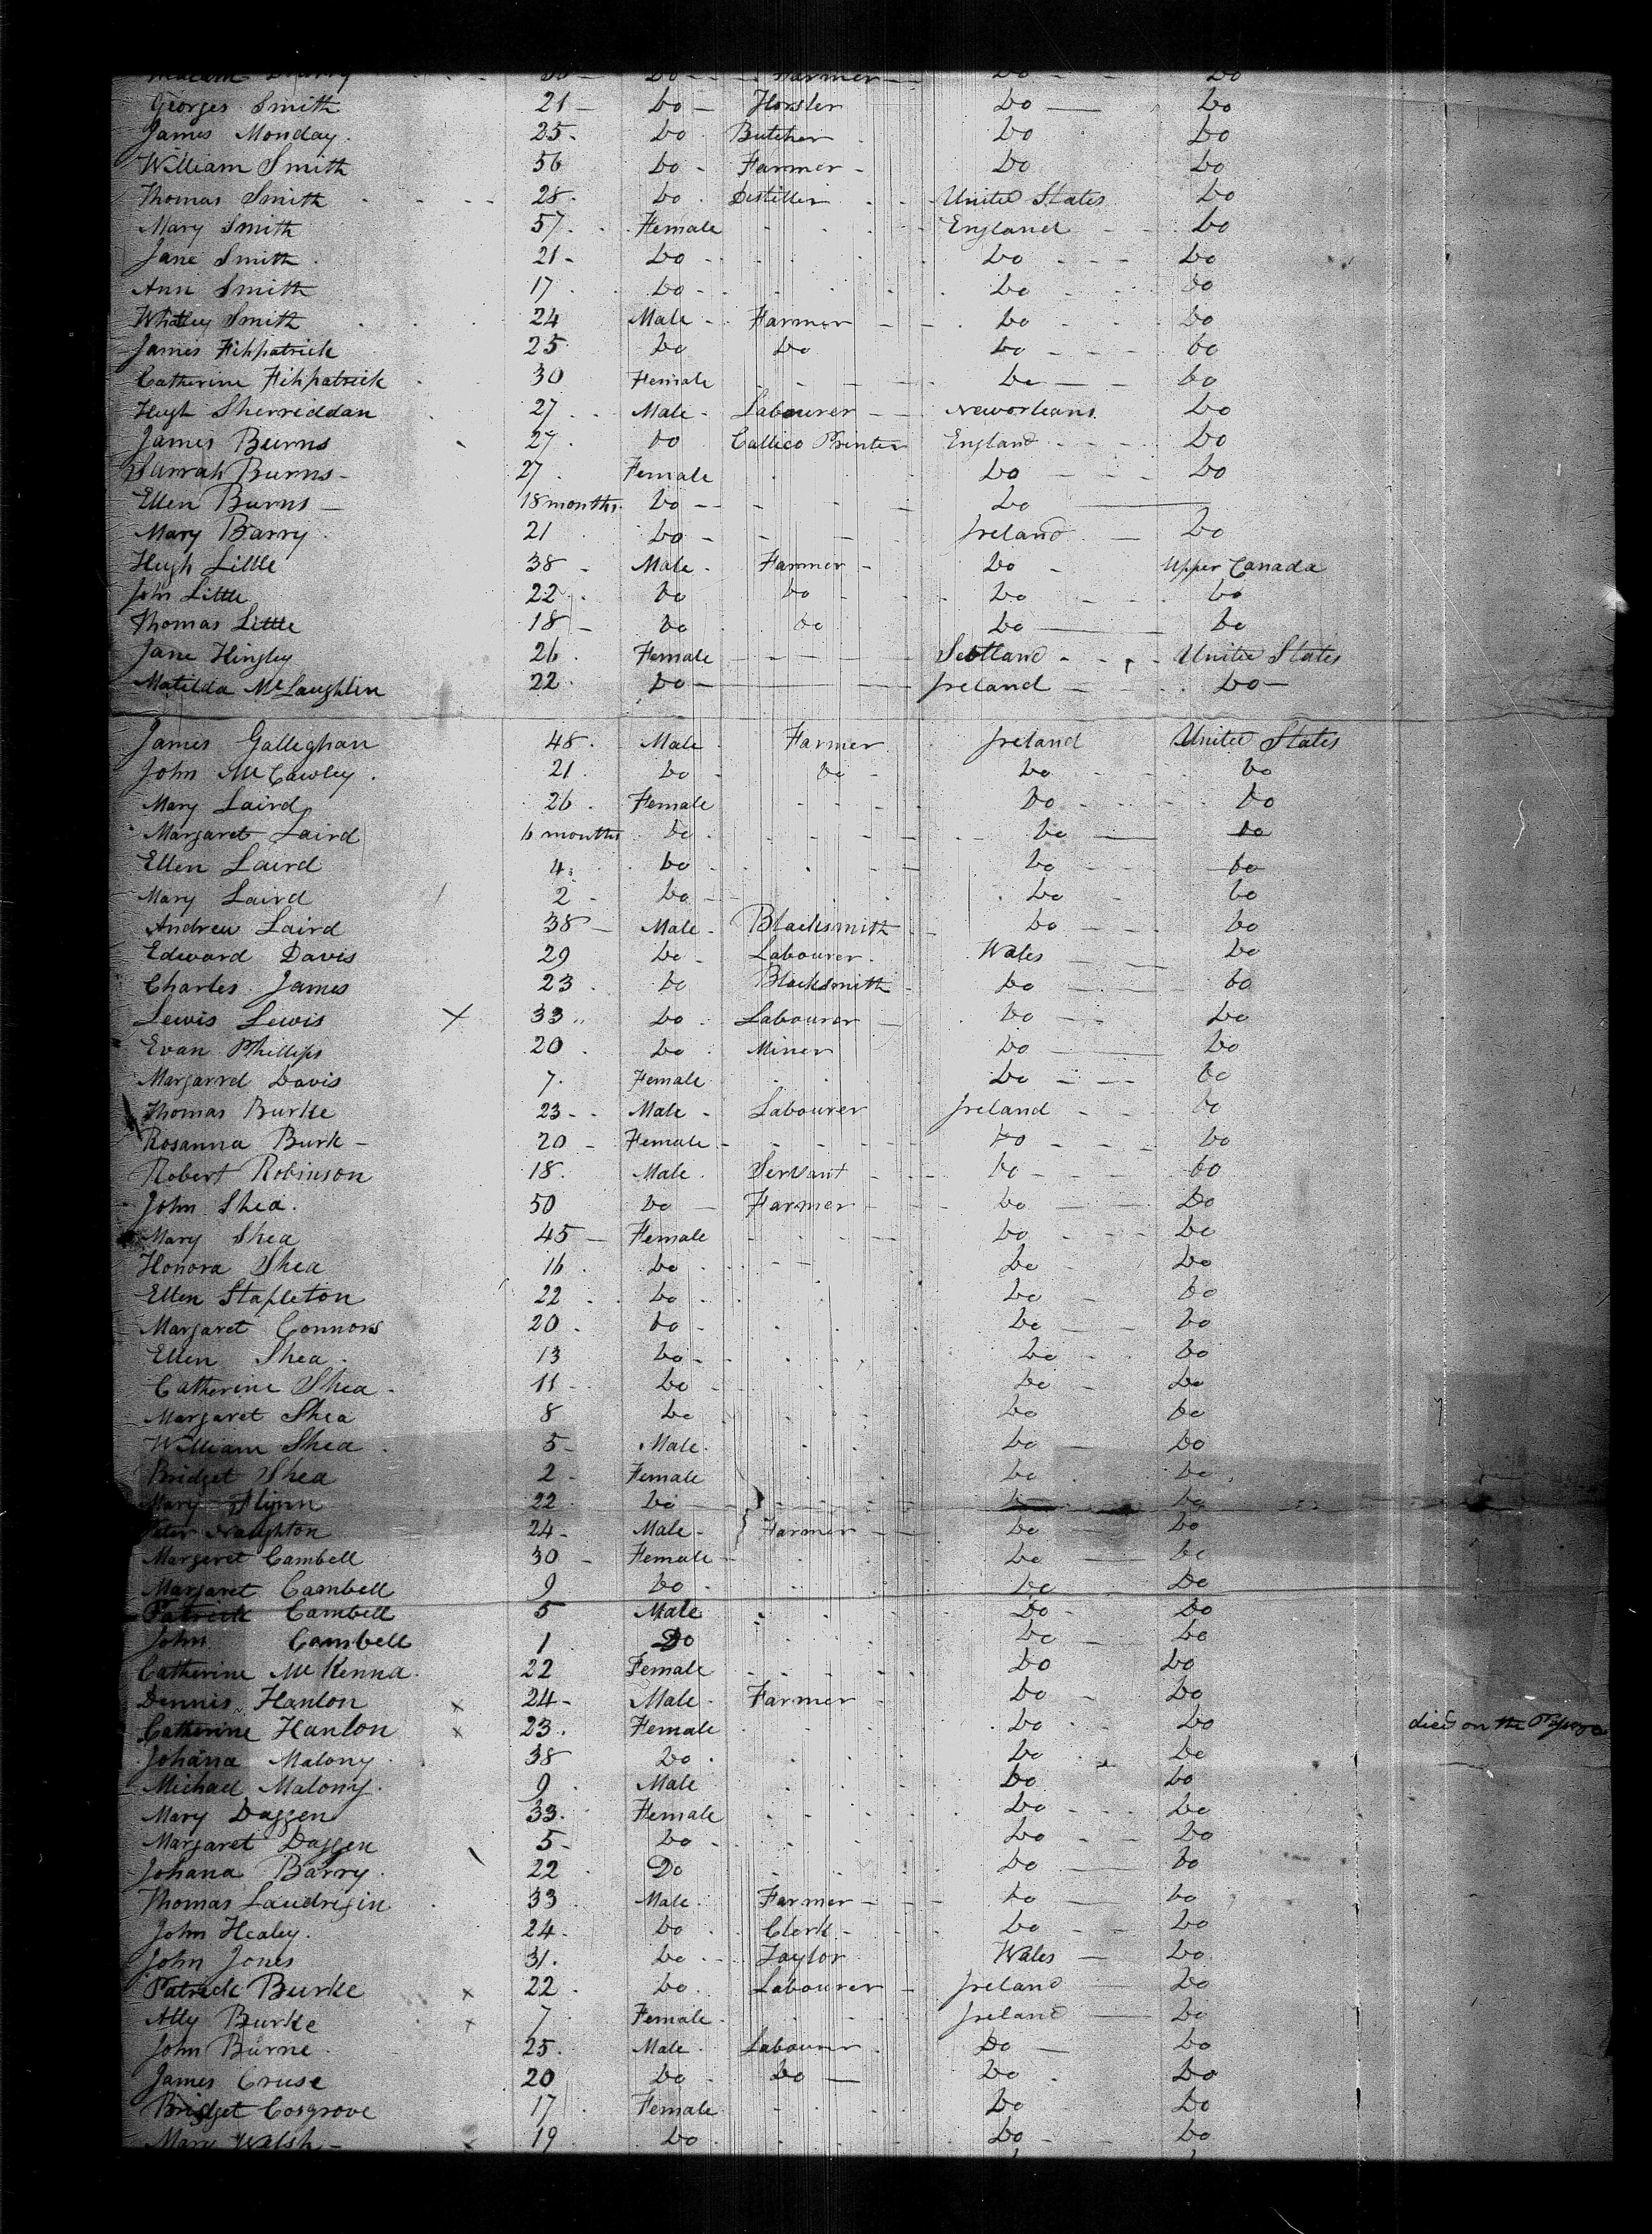 Farmer Do Do
Georges Smith 21 Do Horsler Do Do
James Monday 25 Do Butcher Do Do
William Smith 56 Do Farmer Do Do
Thomas Smith 28 Do Distiller United States Do
Mary Smith 57 Female England Do
Jane Smith 21 Do Do Do
Ann Smith 17 Do Do Do
Smith 24 Male Farmer Do Do
James Fithpatrick 25 Do Do Do Do
Catherine Fithpatrick 30 Female Do Do
Hugh Sherriddan 27 Male Labourer Neworleans Do
James Burns 27 Do Callico Printer England Do
Burns 27 Female Do Do
Ellen Burns 18 months Do Do
Mary Barry 21 Do Ireland Do
Hugh Little 38 Male Farmer Do Upper Canada
John Little 22 Do Do Do Do
Thomas Little 18 Do Do Do Do
Jane Hingley 26 Female Scotland United States
Matilda McLaughlin 22 Do Ireland Do
James Galleghan 48 Male Farmer Ireland United States
John McCawley 21 Do Do Do Do
Mary Laird 26 Female Do Do
Margaret Laird 6 months Do Do Do
Ellen Laird 4 Do Do Do
Mary Laird 2 Do Do Do
Andrew Laird 38 Male Blacksmith Do Do
Edward Davis 29 Do Labourer Wales Do
Charles James 23 Do Blacksmith Do Do
Lewis Lewis X 33 Do Labourer Do Do
Evan Phillips 20 Do Miner Do Do
Margarrd Davis 7 Female Do Do
Thomas Burke 23 Male Labourer Ireland Do
Rosanna Burk 20 Female Do Do
Robert Robinson 18 Male Servant Do Do
John Shea 50 Do Farmer Do Do
Mary Shea 45 Female Do Do
Honora Shea 16 Do Do Do
Ellen Stapleton 22 Do Do Do
Margaret Connors 20 Do Do Do
Ellen Shea 13 Do Do Do
Catherine Shea 11 Do Do Do
Margaret Shea 8 Do Do Do
William Shea 5 Male Do Do
Bridget Shea 2 Female Do Do
Mary Flynn 22 Do Do Do
Peter Naughton 24 Male Farmer Do Do
Margeret Cambell 30 Female Do Do
Margaret Cambell 9 Do Do Do
Patrick Cambell 5 Male Do Do
John Cambell 1 Do Do Do
Catherine McKenna 22 Female Do Do
Dennis Hanlon x 24 Male Farmer Do Do
Catherine Hanlon x 23 Female Do Do died on the
Johana Malony 38 Do Do Do
Michael Malony 9 Male Do Do
Mary Daggen 33 Female Do Do
Margaret Daggen 5 Do Do Do
Johana Barry 22 Do Do Do
Thomas Laudrigin 33 Male Farmer Do Do
John Healey 24 Do Clerk Do Do
John Jones 31 Do Taylor Wales Do
Patrick Burke x 22 Do Labourer Ireland Do
Ally Burke x 7 Female Ireland Do
John Burne 25 Male Labourer Do Do
James Cruse 20 Do Do Do Do
Bridget Cosgrove 17 Female Do Do
Mary Walsh x 19 Do Do Do